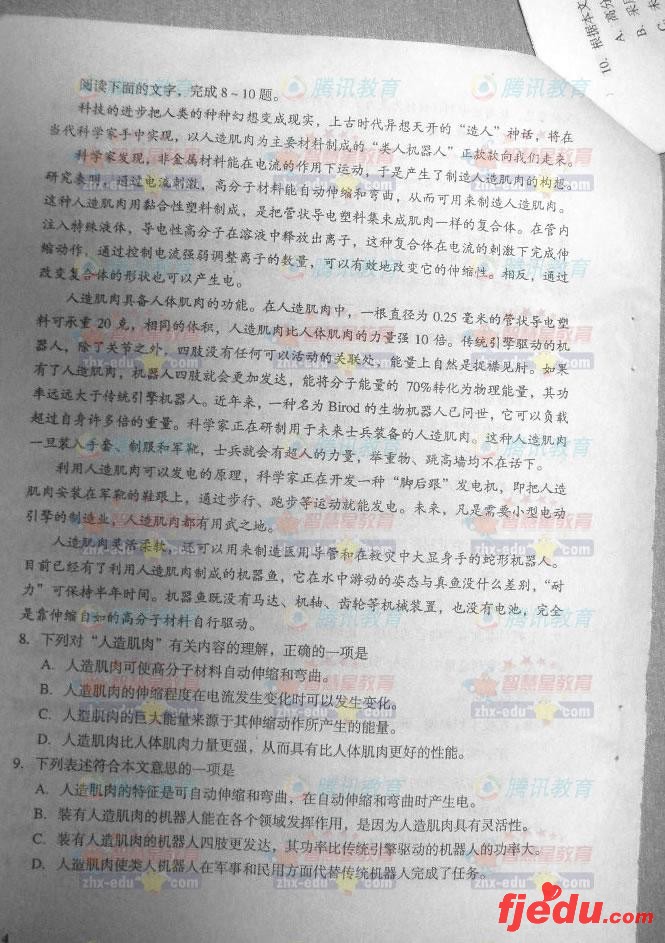 10. 根据本文
A. 高分
B. 采用
C.
阅读下面的文字，完成8～10题。
科技的进步把人类的种种幻想变成现实，上古时代异想天开的“造人”神话，将在
当代科学家手中实现，以人造肌肉为主要材料制成的“类人机器人”正款款向我们走来。
科学家发现，非金属材料能在电流的作用下运动，于是产生了制造人造肌肉的构想。
研究表明，通过电流刺激，高分子材料能自动伸缩和弯曲，从而可用来制造人造肌肉。
这种人造肌肉用黏合性塑料制成，是把管状导电塑料集束成肌肉一样的复合体。在管内
注入特殊液体，导电性高分子在溶液中释放出离子，这种复合体在电流的刺激下完成伸
缩动作，通过控制电流强弱调整离子的数量，可以有效地改变它的伸缩性。相反，通过
改变复合体的形状也可以产生电。
人造肌肉具备人体肌肉的功能。在人造肌肉中，一根直径为0.25毫米的管状导电塑
料可承重20克，相同的体积，人造肌肉比人体肌肉的力量强10倍。传统引擎驱动的机
器人，除了关节之外，四肢没有任何可以活动的关联处，能量上自然是捉襟见肘。如果
有了人造肌肉，机器人四肢就会更加发达，能将分子能量的70%转化为物理能量，其功
率远远大于传统引擎机器人。近年来，一种名为Birod的生物机器人已问世，它可以负载
超过自身许多倍的重量。科学家正在研制用于未来士兵装备的人造肌肉。这种人造肌肉
一旦装入手套、制服和军靴，士兵就会有超人的力量，举重物、跳高墙均不在话下。
利用人造肌肉可以发电的原理，科学家正在开发一种“脚后跟”发电机，即把人造
肌肉安装在军靴的鞋跟上，通过步行、跑步等运动就能发电。未来，凡是需要小型电动
引擎的制造业，人造肌肉都有用武之地。
人造肌肉灵活柔软，还可以用来制造医用导管和在救灾中大显身手的蛇形机器人。
目前已经有了利用人造肌肉制成的机器鱼，它在水中游动的姿态与真鱼没什么差别，“耐
力”可保持半年时间。机器鱼既没有马达、机轴、齿轮等机械装置，也没有电池，完全
是靠伸缩自如的高分子材料自行驱动。
8. 下列对“人造肌肉”有关内容的理解，正确的一项是
A. 人造肌肉可使高分子材料自动伸缩和弯曲。
B. 人造肌肉的伸缩程度在电流发生变化时可以发生变化。
C. 人造肌肉的巨大能量来源于其伸缩动作所产生的能量。
D. 人造肌肉比人体肌肉力量更强，从而具有比人体肌肉更好的性能。
9. 下列表述符合本文意思的一项是
A. 人造肌肉的特征是可自动伸缩和弯曲，在自动伸缩和弯曲时产生电。
B. 装有人造肌肉的机器人能在各个领域发挥作用，是因为人造肌肉具有灵活性。
C. 装有人造肌肉的机器人四肢更发达，其功率比传统引擎驱动的机器人的功率大。
D. 人造肌肉使类人机器人在军事和民用方面代替传统机器人完成了任务。
fjedu.com